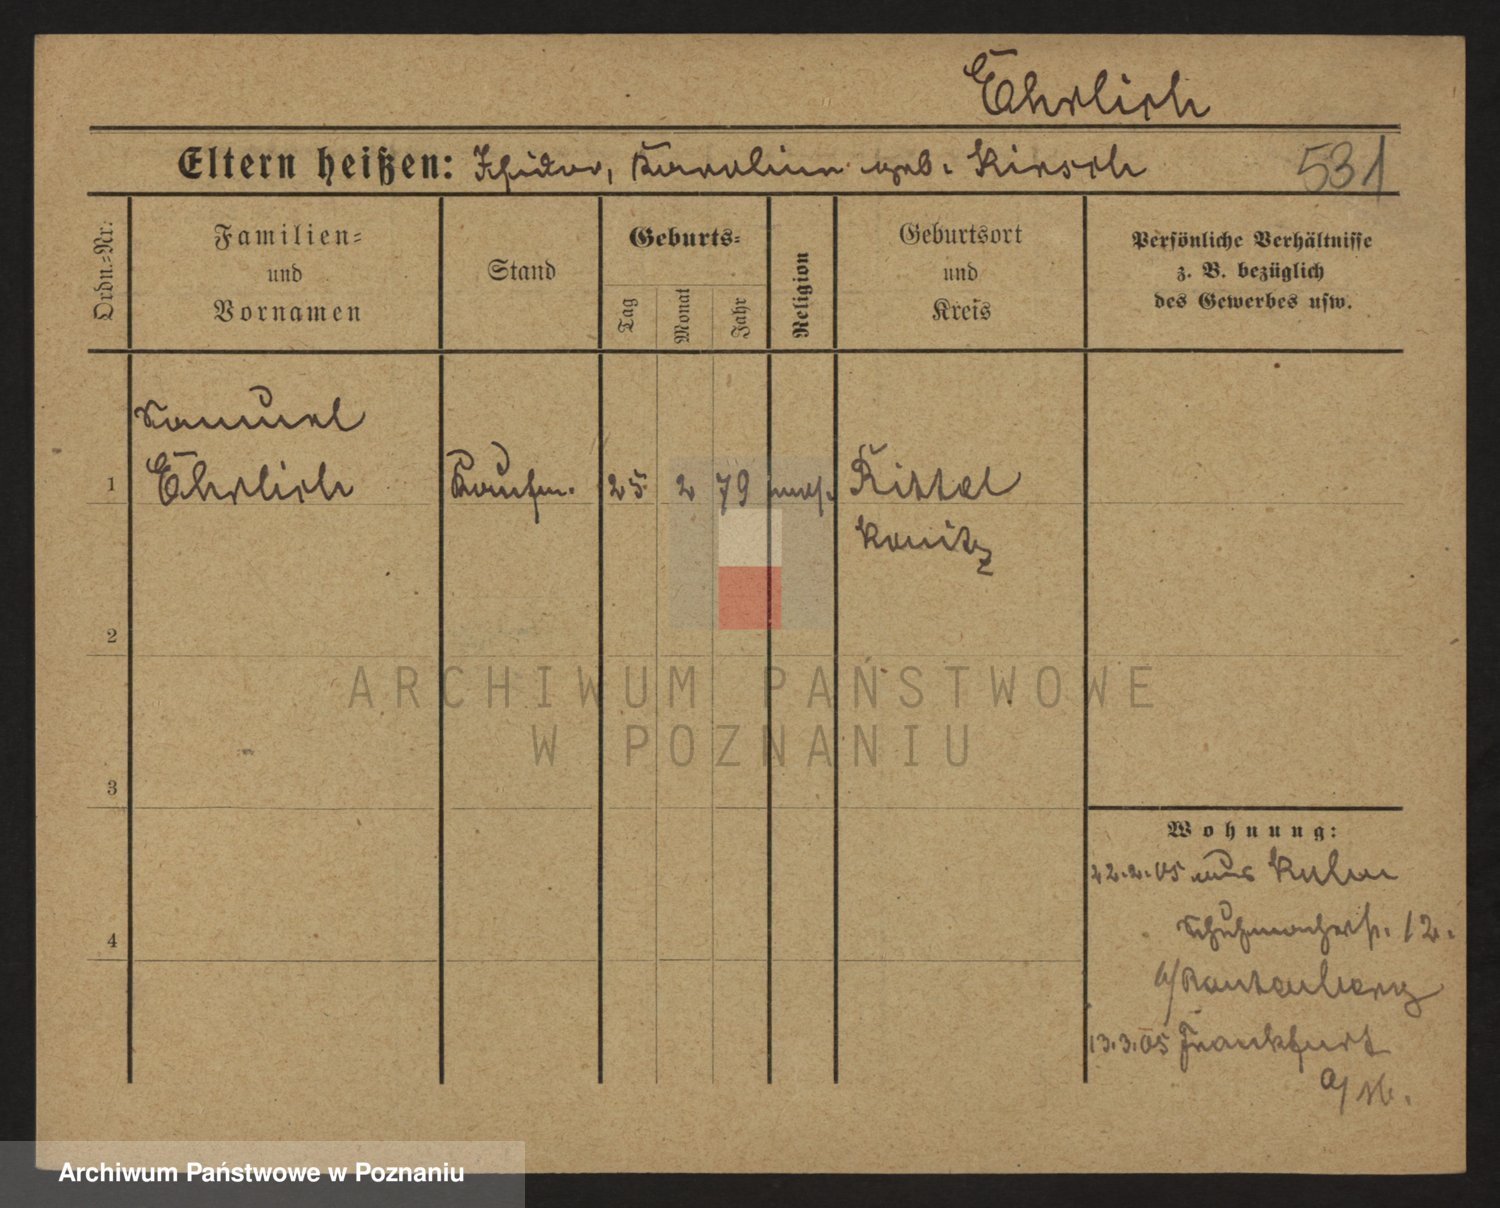 Ehrlich
Eltern heißen: Isidor, Karoline geb. Kirsch 531
Ordn.=Nr.
Familien=
und
Vornamen
Stand
Geburts=
Tag
Monat
Jahr
Religion
Geburtsort
und
Kreis
Persönliche Verhältnisse
z. B. bezüglich
des Gewerbes usw.
Samuel
1 Ehrlich Kaufm. 25 2 79 mos. Kittel
Konitz
2
3
4
Wohnung:
22.2.05 aus Kulm
Schuhmacherstr. 12.
b/ Rautenberg
13.3.05 Frankfurt
a/M.
ARCHIWUM PAŃSTWOWE
W POZNANIU
Archiwum Państwowe w Poznaniu